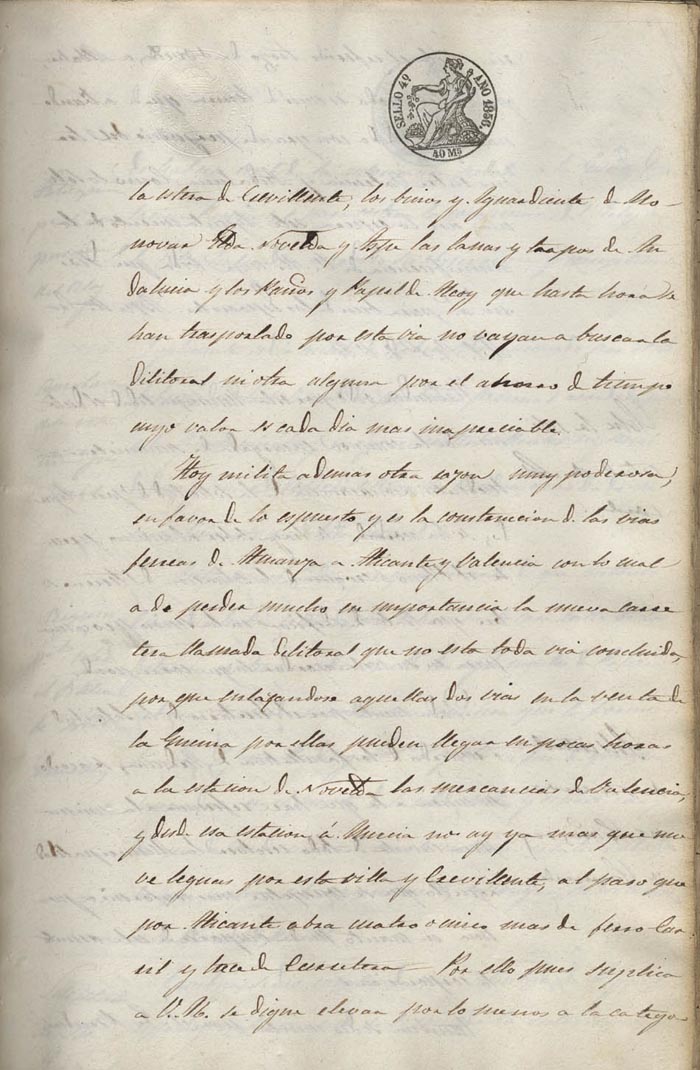 SELLO 4º AÑO 1856.
40 Ms
la estera de Crevillente, los binos y Aguardiente de Mo-
novar Elda Novelda y Aspe las lanas y trapos de An
dalucia y los Paños y Papel de Alcoy que hasta hora se
han trasportado por esta via no vayan a buscar la
dilitoral ni otra alguna por el ahorro de tiempo
cuyo valor es cada dia mas inapreciable.
Hoy milita ademas otra razon muy poderosa,
en favor de lo espuesto y es la construccion de las vias
ferreas de Almanza a Alicante y Valencia con lo cual
a de perder mucho en importancia la nueva Carre
tera llamada dilitoral que no esta toda via concluida,
por que enlazandose aquellas dos vias en la venta de
la Encina por ellas pueden llegar en pocas horas
a la estacion de Novelda las mercancias de Valencia,
y desde esa estacion á Murcia no ay ya mas que nue
ve leguas por esta villa y Crevillente, al paso que
por Alicante abra cuatro o cinco mas de ferro Car
ril y trece de Carretera — Por ello pues suplica
a V. M. se digne elevar por lo menos a la catego